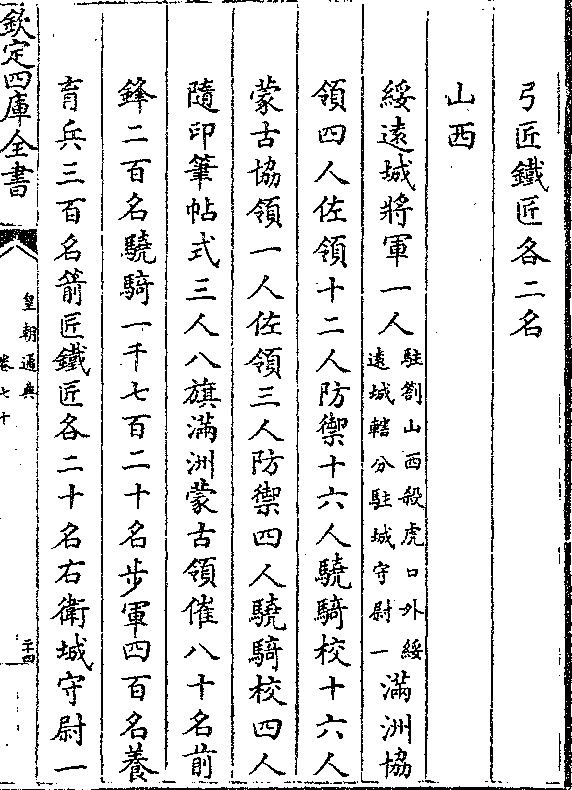 弓匠鐵匠各二名
山西
綏遠城將軍一人駐劄山西殺虎口外綏遠城轄分駐城守尉一滿洲協
領四人佐領十二人防禦十六人驍騎校十六人
蒙古協領一人佐領三人防禦四人驍騎校四人
隨印筆帖式三人八旗滿洲蒙古領催八十名前
鋒二百名驍騎一千七百二十名步軍四百名養
育兵三百名箭匠鐵匠各二十名右衛城守尉一
欽定四庫全書
皇朝通典
卷七十
二十四